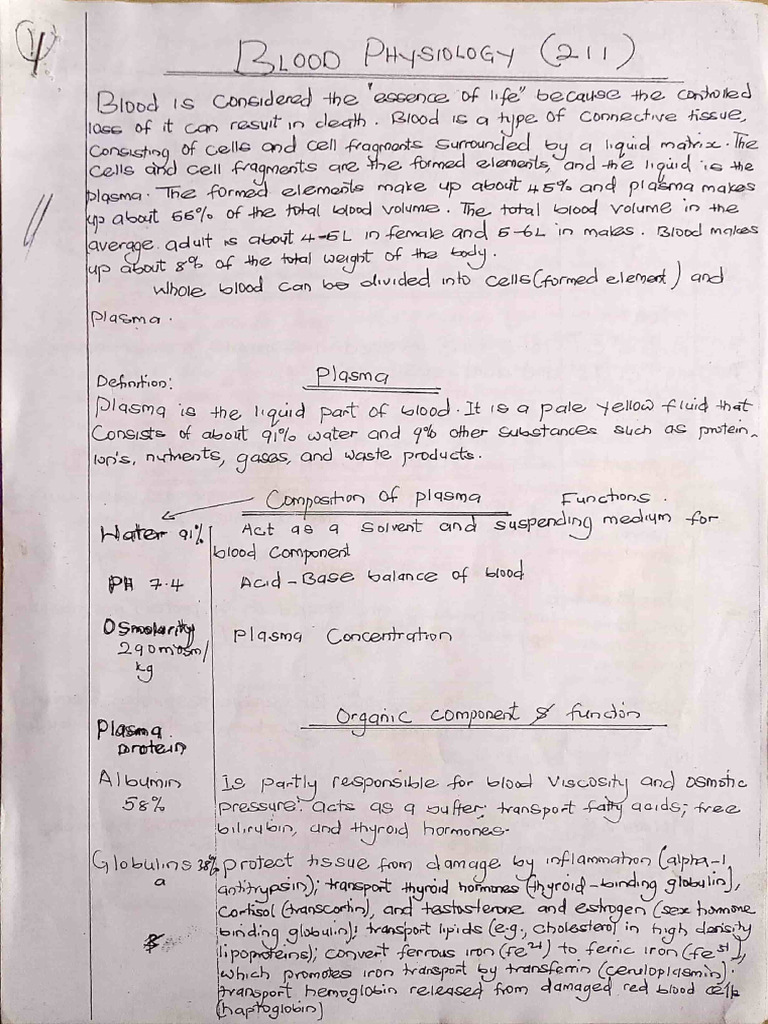 4
BLOOD PHYSIOLOGY (211)
Blood is considered the "essence of life" because the controlled
loss of it can result in death. Blood is a type of connective tissue,
consisting of cells and cell fragments surrounded by a liquid matrix. The
cells and cell fragments are the formed elements, and the liquid is the
plasma. The formed elements make up about 45% and plasma makes
up about 55% of the total blood volume. The total blood volume in the
average adult is about 4-5L in female and 5-6L in males. Blood makes
up about 8% of the total weight of the body.
Whole blood can be divided into cells (formed element) and
plasma.
Plasma
Definition:
Plasma is the liquid part of blood. It is a pale yellow fluid that
consists of about 91% water and 9% other substances such as protein,
ion's, nutrients, gases, and waste products.
Composition of plasma Functions.
Water 91% Act as a solvent and suspending medium for
blood component
PH 7.4 Acid-Base balance of blood
Osmolarity Plasma Concentration
290mosm/
kg
Organic component & function
Plasma
protein
Albumin Is partly responsible for blood viscosity and osmotic
58% pressure: acts as a buffer; transport fatty acids; free
bilirubin, and thyroid hormones.
Globulins 38% protect tissue from damage by inflammation (alpha-1
a antitrypsin); transport thyroid hormones (thyroid-binding globulin),
cortisol (transcortin), and testosterone and estrogen (sex hormone
binding globulin); transport lipids (e.g., cholesterol in high density
lipoproteins); convert ferrous iron (fe2+) to ferric iron (fe3+),
which promotes iron transport by transferrin (ceruloplasmin).
transport hemoglobin released from damaged red blood cells
(haptoglobin)